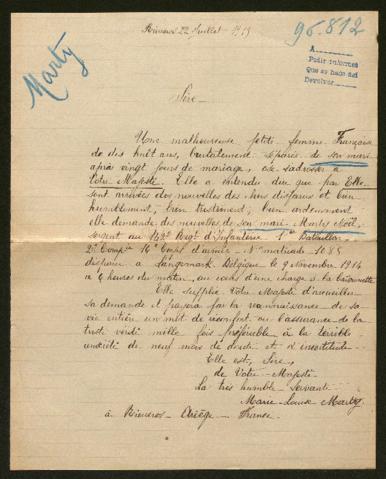 Rieucros 22 Juillet 1915
95.812
Marty
A
Pedir informes
Que se hace así
Devolver
Sire
Une malheureuse petite femme Française
de dix huit ans, brutalement séparée de son mari
après vingt jours de mariage, ose s'adresser à
Votre Majesté. Elle a entendu dire que par Elle
sont arrivées des nouvelles des chers disparus et bien
humblement, bien tristement, bien ardemment
elle demande des nouvelles de son mari Martes Noël,
sergent au 142e Regt d'Infanterie 1er Bataillon
2e Compie 16e Corps d'armée No matricule 1085
disparu à Langemark Belgique le 9 novembre 1914
à 4 heures du matin, au cours d'une charge à la baïonnette.
Elle supplie Votre Majesté d'accueillir
sa demande et pour la reconnaissance de sa
vie entière un mot de réconfort ou l'assurance de la
triste mille fois préférable à la terrible
anxiété de neuf mois de doute et d'incertitude.
Elle est, Sire,
de Votre Majesté
la très humble servante
Marie-Louise Marty
à Rieucros Ariège France